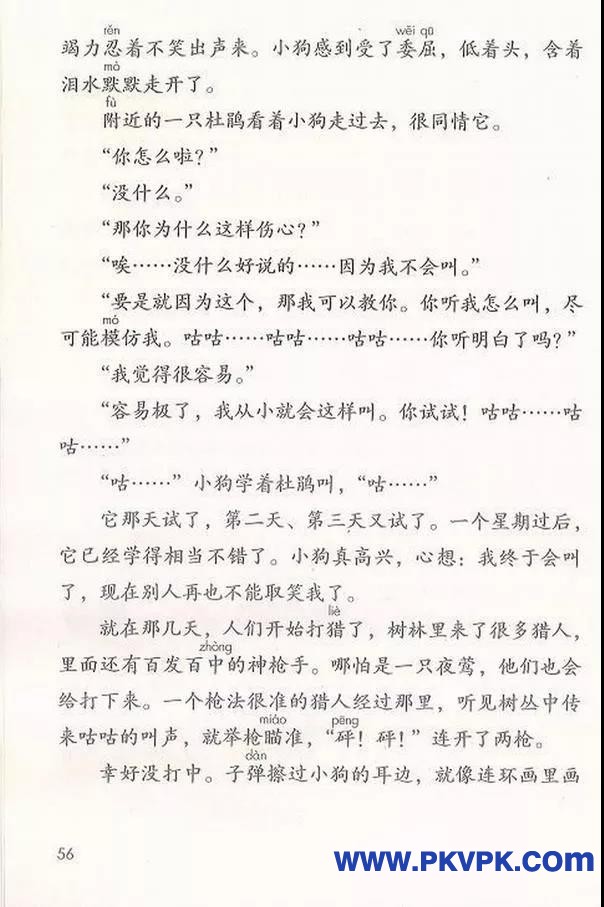 rěn wěi qū
竭力忍着不笑出声来。小狗感到受了委屈，低着头，含着
mò
泪水默默走开了。
fù
附近的一只杜鹃看着小狗走过去，很同情它。
“你怎么啦？”
“没什么。”
“那你为什么这样伤心？”
“唉……没什么好说的……因为我不会叫。”
“要是就因为这个，那我可以教你。你听我怎么叫，尽
mó
可能模仿我。咕咕……咕咕……咕咕……你听明白了吗？”
“我觉得很容易。”
“容易极了，我从小就会这样叫。你试试！咕咕……咕
咕……”
“咕……”小狗学着杜鹃叫，“咕……”
它那天试了，第二天、第三天又试了。一个星期过后，
它已经学得相当不错了。小狗真高兴，心想：我终于会叫
了，现在别人再也不能取笑我了。
liè
就在那几天，人们开始打猎了，树林里来了很多猎人，
zhòng
里面还有百发百中的神枪手。哪怕是一只夜莺，他们也会
给打下来。一个枪法很准的猎人经过那里，听见树丛中传
miáo pēng
来咕咕的叫声，就举枪瞄准，“砰！砰！”连开了两枪。
dàn
幸好没打中。子弹擦过小狗的耳边，就像连环画里画
56
www.PKVPK.com